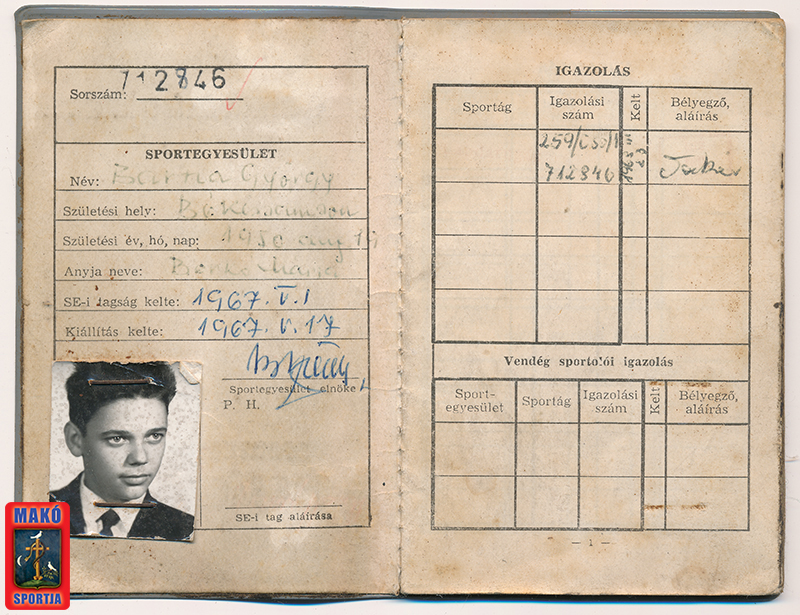 712846
Sorszám:
SPORTEGYESÜLET
Név: György
Születési hely:
Születési év, hó, nap: 1950 aug 19
Anyja neve: Mária
SE-i tagság kelte: 1967. V. 1
Kiállítás kelte: 1967. V. 17
Sportegyesület elnöke
P. H.
SE-i tag aláírása
MAKÓ
SPORTJA
IGAZOLÁS
Sportág Igazolási szám Kelt Bélyegző, aláírás
712846
Vendég sportolói igazolás
Sport-egyesület Sportág Igazolási szám Kelt Bélyegző, aláírás
— 1 —